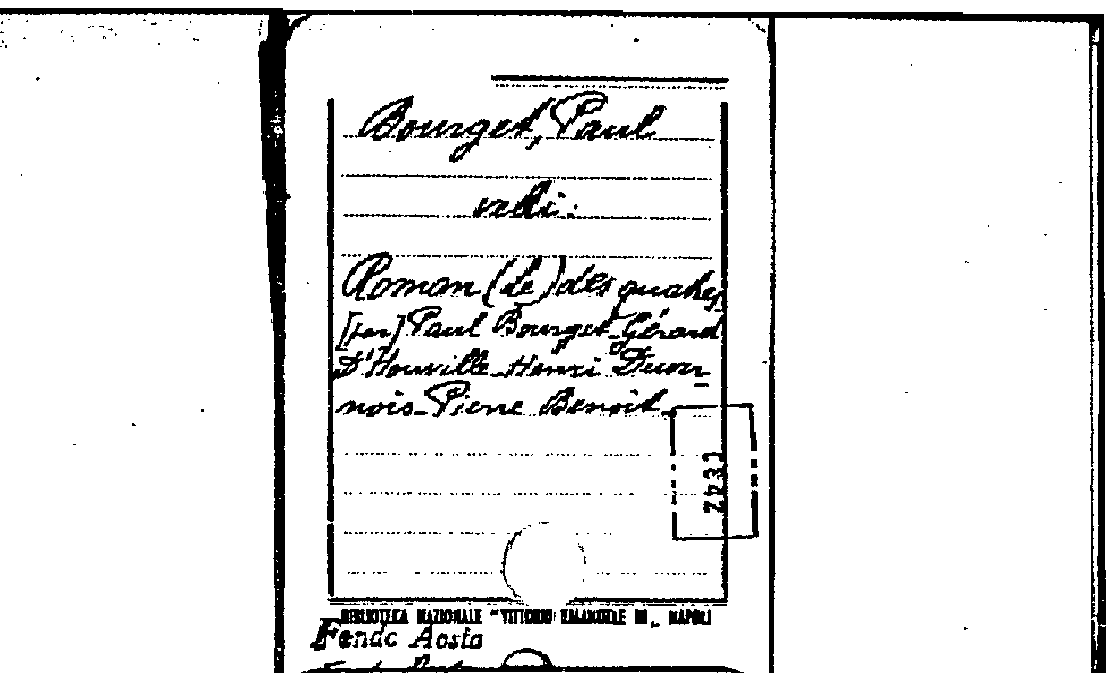 Bourget, Paul
vedi:
Roman (le) des quatre
[par] Paul Bourget-Gérard
D'Houville-Henri Duver
nois-Pierre Benoit.
BIBLIOTECA NAZIONALE "VITTORIO EMANUELE III„ NAPOLI
Fondo Aosta